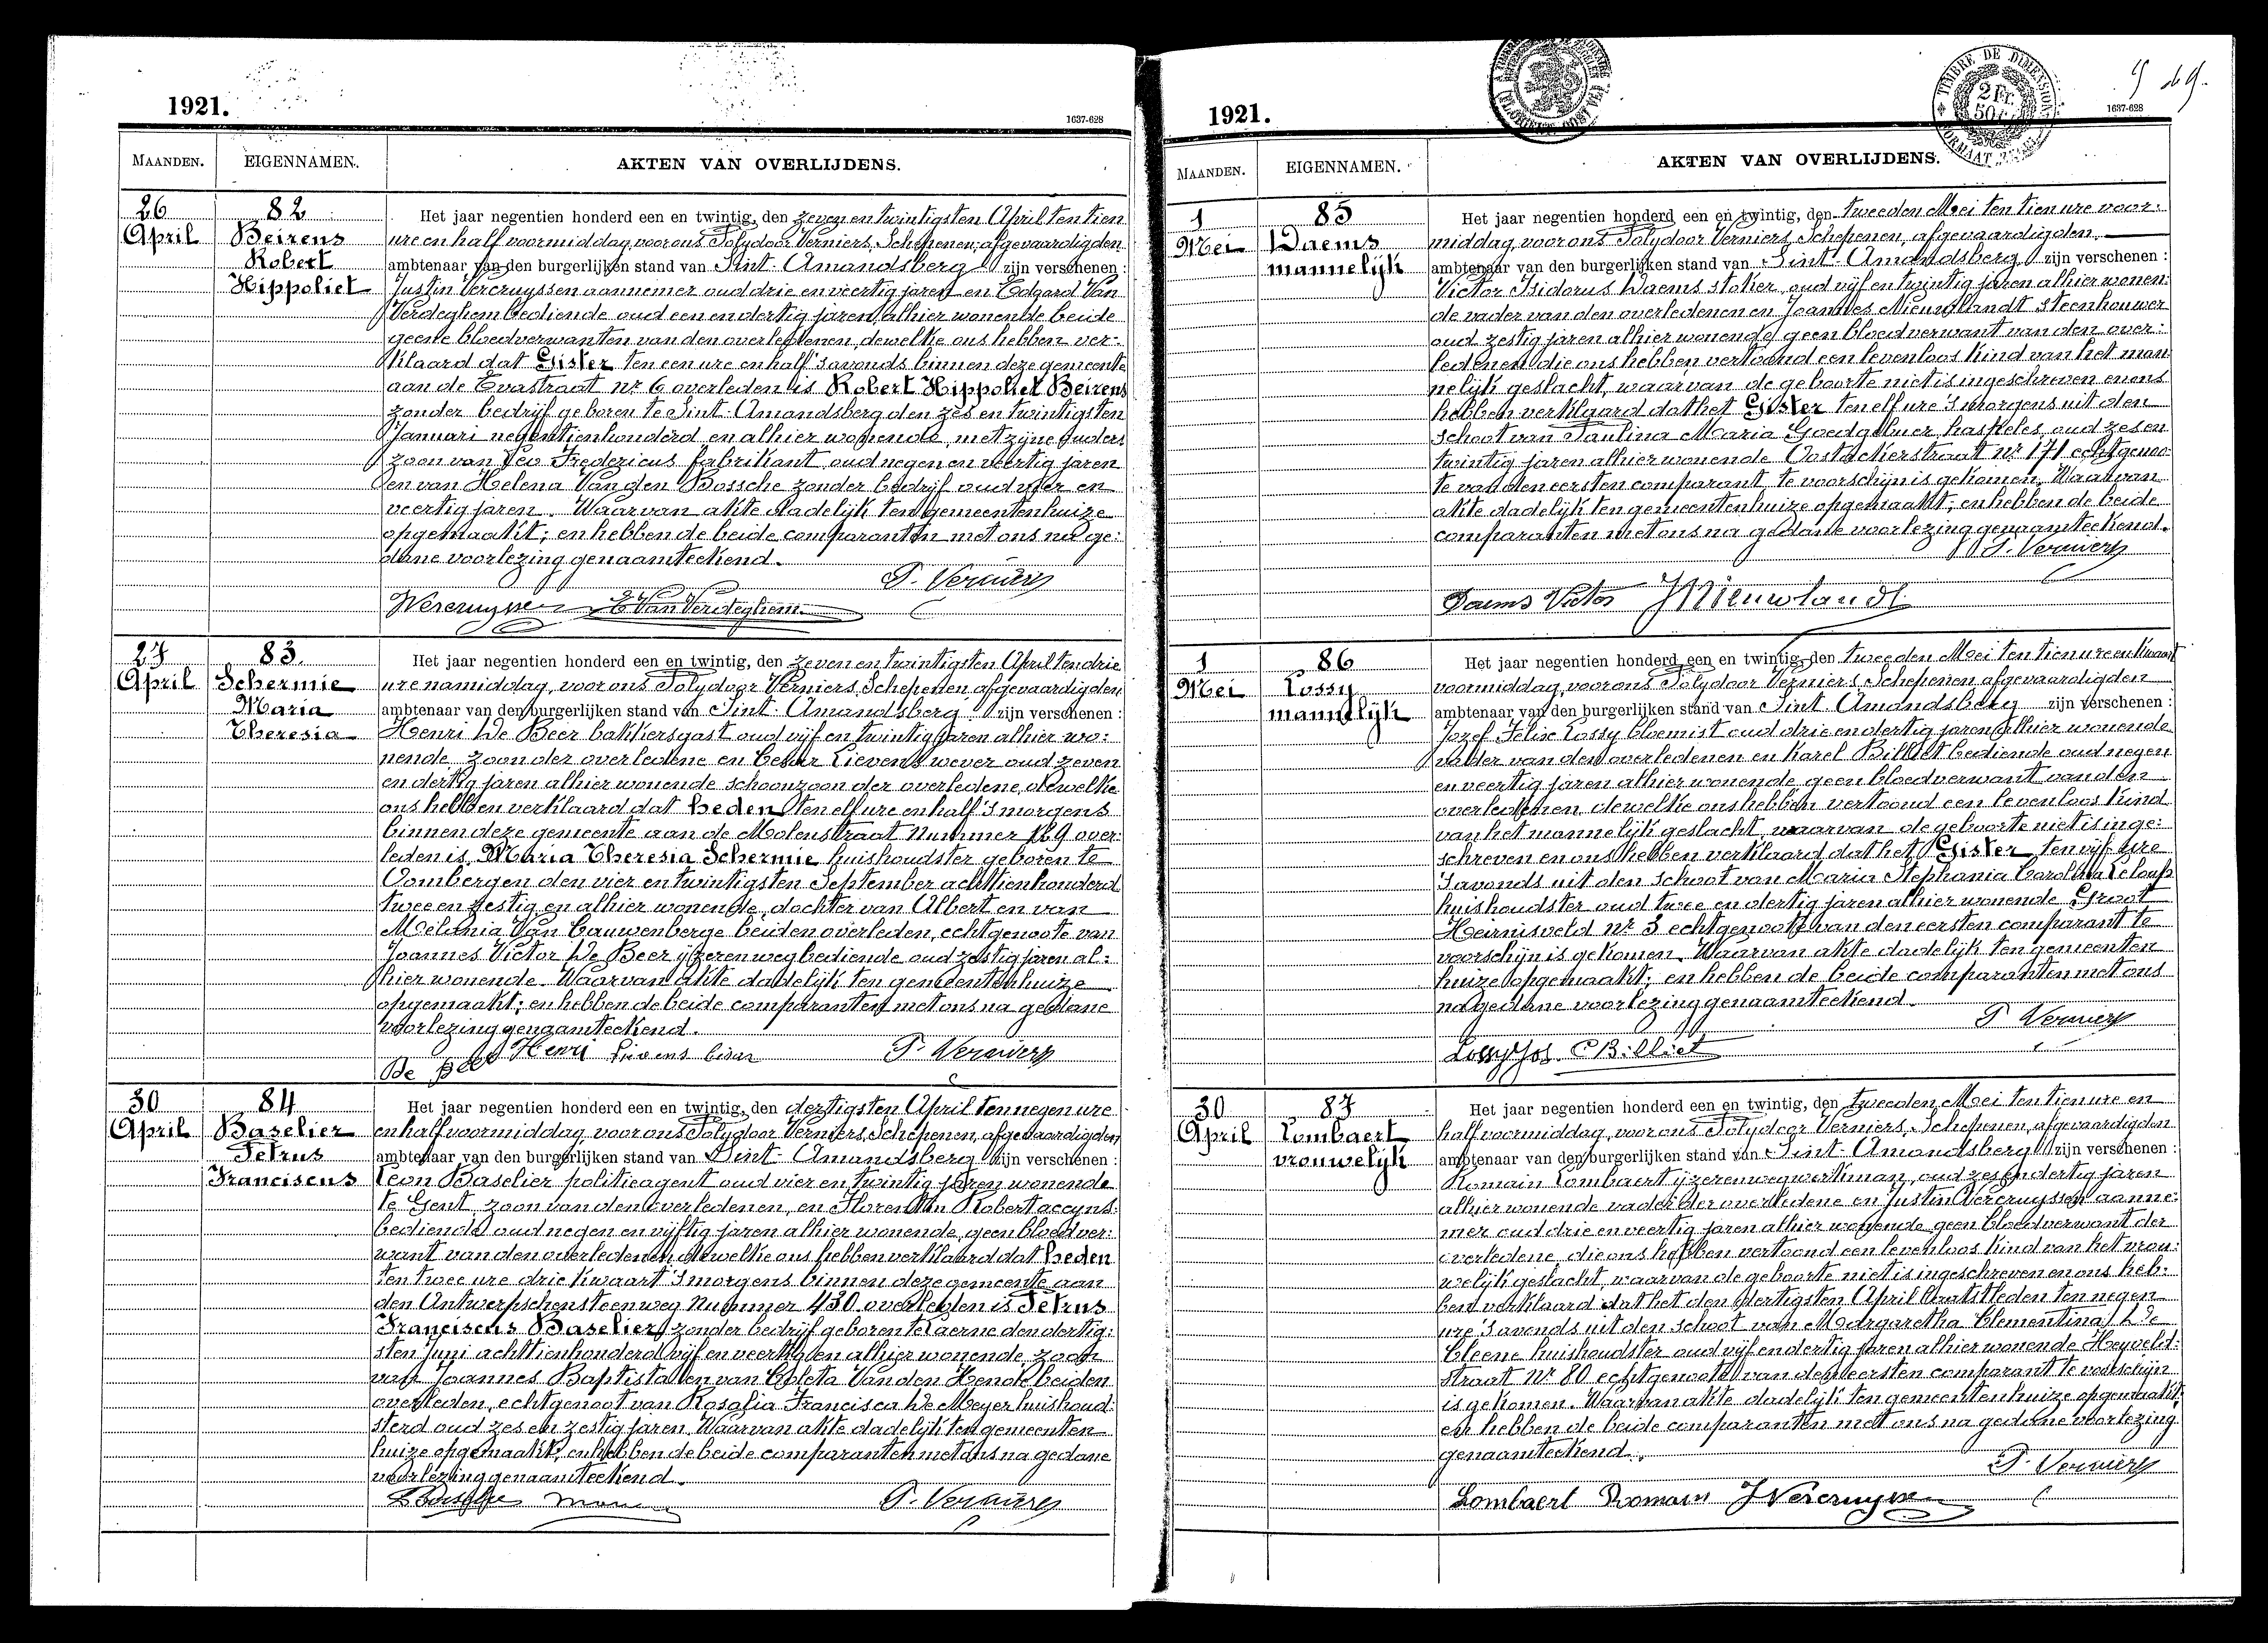 1921.
1637-628
MAANDEN.
EIGENNAMEN.
AKTEN VAN OVERLIJDENS.
26
April
82
Beirens
Robert
Hippoliet
Het jaar negentien honderd een en twintig, den zeven en twintigsten April ten tien
ure en half voormiddag, voor ons Polydoor Verniers, Schepenen, afgevaardigden
ambtenaar van den burgerlijken stand van Sint-Amandsberg zijn verschenen :
Justin Vercruyssen aannemer oud drie en veertig jaren en Edgard Van
Verdeghem bediende oud een en dertig jaren, alhier wonende beide
geene bloedverwanten van den overledenen, dewelke ons hebben ver-
klaard dat Gister ten een ure en half 's avonds binnen deze gemeente
aan de Evastraat nr 6 overleden is Robert Hippoliet Beirens
zonder bedrijf geboren te Sint-Amandsberg den zes en twintigsten
Januari negentienhonderd en alhier wonende, met zijne ouders
zoon van Leo Fredericus fabrikant oud negen en veertig jaren
en van Helena Van den Bossche zonder bedrijf oud vier en
veertig jaren. Waarvan akte dadelijk ten gemeentenhuize
opgemaakt; en hebben de beide comparanten met ons na ge:
dane voorlezing genaamteekend.
P. Verniers
JVercruyssen E Van Verdeghem
27
April
83.
Schermie
Maria
Theresia
Het jaar negentien honderd een en twintig, den zeven en twintigsten April ten drie
ure namiddag, voor ons Polydoor Verniers, Schepenen, afgevaardigden
ambtenaar van den burgerlijken stand van Sint-Amandsberg zijn verschenen :
Henri De Beer bakkersgast oud vijf en twintig jaren alhier wo:
nende, zoon der overledene en Cesar Lievens wever oud zeven
en dertig jaren alhier wonende schoonzoon der overledene, dewelke
ons hebben verklaard dat heden ten elf ure en half 's morgens
binnen deze gemeente aan de Molenstraat Nummer 129 over:
leden is Maria Theresia Schermie huishoudster geboren te
Oombergen den vier en twintigsten September achttienhonderd
twee en zestig en alhier wonende, dochter van Albert en van
Melania Van Cauwenberge beiden overleden, echtgenoote van
Joannes Victor De Beer ijzerenwegbediende oud zestig jaren al:
hier wonende. Waarvan akte dadelijk ten gemeentenhuize
opgemaakt; en hebben de beide comparanten met ons na gedane
voorlezing genaamteekend.
De Beer Henri Lievens Cesar P. Verniers
30
April
84
Baselier
Petrus
Franciscus
Het jaar negentien honderd een en twintig, den dertigsten April ten negen ure
en half voormiddag, voor ons Polydoor Verniers, Schepenen, afgevaardigden
ambtenaar van den burgerlijken stand van Sint-Amandsberg zijn verschenen :
Leon Baselier politieagent oud vier en twintig jaren wonende
te Gent, zoon van den overledenen, en Florentin Robert accyns:
bediende oud negen en vijftig jaren alhier wonende, geen bloedver:
want van den overledenen, dewelke ons hebben verklaard dat heden
ten twee ure drie kwaart 's morgens binnen deze gemeente aan
den Antwerpschensteenweg Nummer 430 overleden is Petrus
Franciscus Baselier, zonder bedrijf geboren te Laerne den dertig:
sten Juni achttienhonderd vijf en veertig en alhier wonende, zoon
van Joannes Baptista en van Coleta Van den Hende beiden
overleden, echtgenoot van Rosalia Francisca De Meyer huishoud:
sterd oud zes en zestig jaren. Waarvan akte dadelijk ten gemeenten
huize opgemaakt, en hebben de beide comparanten met ons na gedane
voorlezing genaamteekend.
P. Verniers
1921.
TIMBRE DE DIMENSION
2 Fr.
50
1637-628
MAANDEN.
EIGENNAMEN.
AKTEN VAN OVERLIJDENS.
1
Mei
85
Daems
mannelijk
Het jaar negentien honderd een en twintig, den tweeden Mei ten tien ure voor:
middag, voor ons Polydoor Verniers, Schepenen, afgevaardigden
ambtenaar van den burgerlijken stand van Sint-Amandsberg zijn verschenen :
Victor Isidorus Daems stoker, oud vijf en twintig jaren alhier wonen:
de vader van den overledenen en Joannes Nieuwlandt steenhouwer
oud zestig jaren alhier wonende geen bloedverwant van den over:
ledenen, die ons hebben vertoond een levenloos kind van het man:
nelijk geslacht, waarvan de geboorte niet is ingeschreven en ons
hebben verklaard dat het Gister ten elf ure 's morgens uit den
schoot van Paulina Maria Goedgebuer, haspeles, oud zes en
twintig jaren alhier wonende Oostackerstraat nr 171 echtgenoo:
te van den eersten comparant te voorschijn is gekomen. Waarvan
akte dadelijk ten gemeentenhuize opgemaakt; en hebben de beide
comparanten met ons na gedane voorlezing genaamteekend.
P. Verniers
Daems Victor J Nieuwlandt
1
Mei
86
Lossy
mannelijk
Het jaar negentien honderd een en twintig, den tweeden Mei ten tien ure en kwaart
voormiddag, voor ons Polydoor Verniers, Schepenen afgevaardigden
ambtenaar van den burgerlijken stand van Sint-Amandsberg zijn verschenen :
Jozef Felix Lossy bloemist oud drie en dertig jaren alhier wonende
vader van den overledenen en Karel Billiet bediende oud negen
en veertig jaren alhier wonende geen bloedverwant van den
overledenen, dewelke ons hebben vertoond een levenloos kind
van het mannelijk geslacht, waarvan de geboorte niet is inge:
schreven en ons hebben verklaard dat het Gister ten vijf ure
's avonds uit den schoot van Maria Stephania Carolina Leloup
huishoudster oud twee en dertig jaren alhier wonende Groot
Heirnisveld nr 3 echtgenoote van den eersten comparant te
voorschijn is gekomen. Waarvan akte dadelijk ten gemeenten
huize opgemaakt; en hebben de beide comparanten met ons
na gedane voorlezing genaamteekend.
P Verniers
Lossy Jos. C Billiet
30
April
87
Lombaert
vrouwelijk
Het jaar negentien honderd een en twintig, den tweeden Mei ten tien ure en
half voormiddag, voor ons Polydoor Verniers, Schepenen, afgevaardigden
ambtenaar van den burgerlijken stand van Sint-Amandsberg zijn verschenen :
Romain Lombaert ijzerenwegwerkman, oud zes en dertig jaren
alhier wonende vader der overledene en Justin Vercruyssen aanne:
mer oud drie en veertig jaren alhier wonende geen bloedverwant der
overledene, die ons hebben vertoond een levenloos kind van het vrou:
welijk geslacht, waarvan de geboorte niet is ingeschreven en ons heb:
ben verklaard dat het den dertigsten April laatstleden ten negen
ure 's avonds uit den schoot van Margaretha Clementina De
Cleene huishoudster oud vijf en dertig jaren alhier wonende Heyveld:
straat Nr 80 echtgenoote van den eersten comparant te voorschijn
is gekomen. Waarvan akte dadelijk ten gemeentenhuize opgemaakt;
en hebben de beide comparanten met ons na gedane voorlezing
genaamteekend.
P. Verniers
Lombaert Romain JVercruyssen